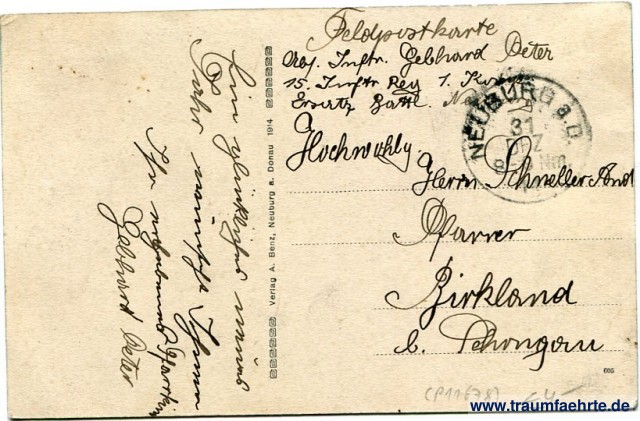 Feldpostkarte
Res. Inftr. Gebhard Peter
15. Inftr. Reg 1. Komp.
Ersatz Batl. N.
NEUBURG a.D.
31
DEZ
8-9 Nm.
Hochwohlg.
Herrn Schneller And
Pfarrer
Birkland
b. Schongau
Ein glückliches neues
Jahr wünscht Ihnen
Ihr
Gebhard Peter
Verlag A. Benz, Neuburg a. Donau 1914
605
(P11678)
www.traumfaehrte.de